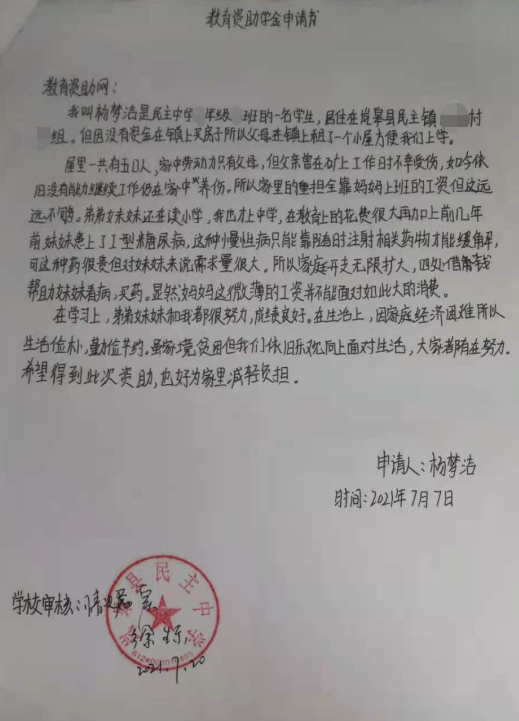 教育资助学金申请书
教育资助网：
我叫杨梦洁是民主中学 年级 班的一名学生，居住在岚皋县民主镇 村
组。但因没有资金在镇上买房子所以父母在镇上租了一个小屋方便我们上学。
屋里一共有五口人，家中劳动力只有父母，但父亲曾在矿上工作时不幸受伤，如今依
旧没有能力继续工作仍在家中养伤。所以家里的重担全靠妈妈上班的工资但这远
远不够。弟弟妹妹还在读小学，我也才上中学，在教育上的花费很大再加上前几年
前妹妹患上了I型糖尿病，这种慢性病只能靠随时注射相关药物才能缓解，
可这种药很贵但对妹妹来说需求量很大。所以家庭开支无限扩大，四处借钱
帮助妹妹看病，买药。显然妈妈这微薄的工资并不能面对如此大的消费。
在学习上，弟弟妹妹和我都很努力，成绩良好。在生活上，因家庭经济困难所以
生活俭朴，勤俭节约。虽家境贫困但我们依旧乐观向上面对生活，大家都在努力。
希望得到此次资助，也好为家里减轻负担。
申请人：杨梦洁
时间：2021年7月7日
学校审核：情况属实
县民主中学
2021.7.20